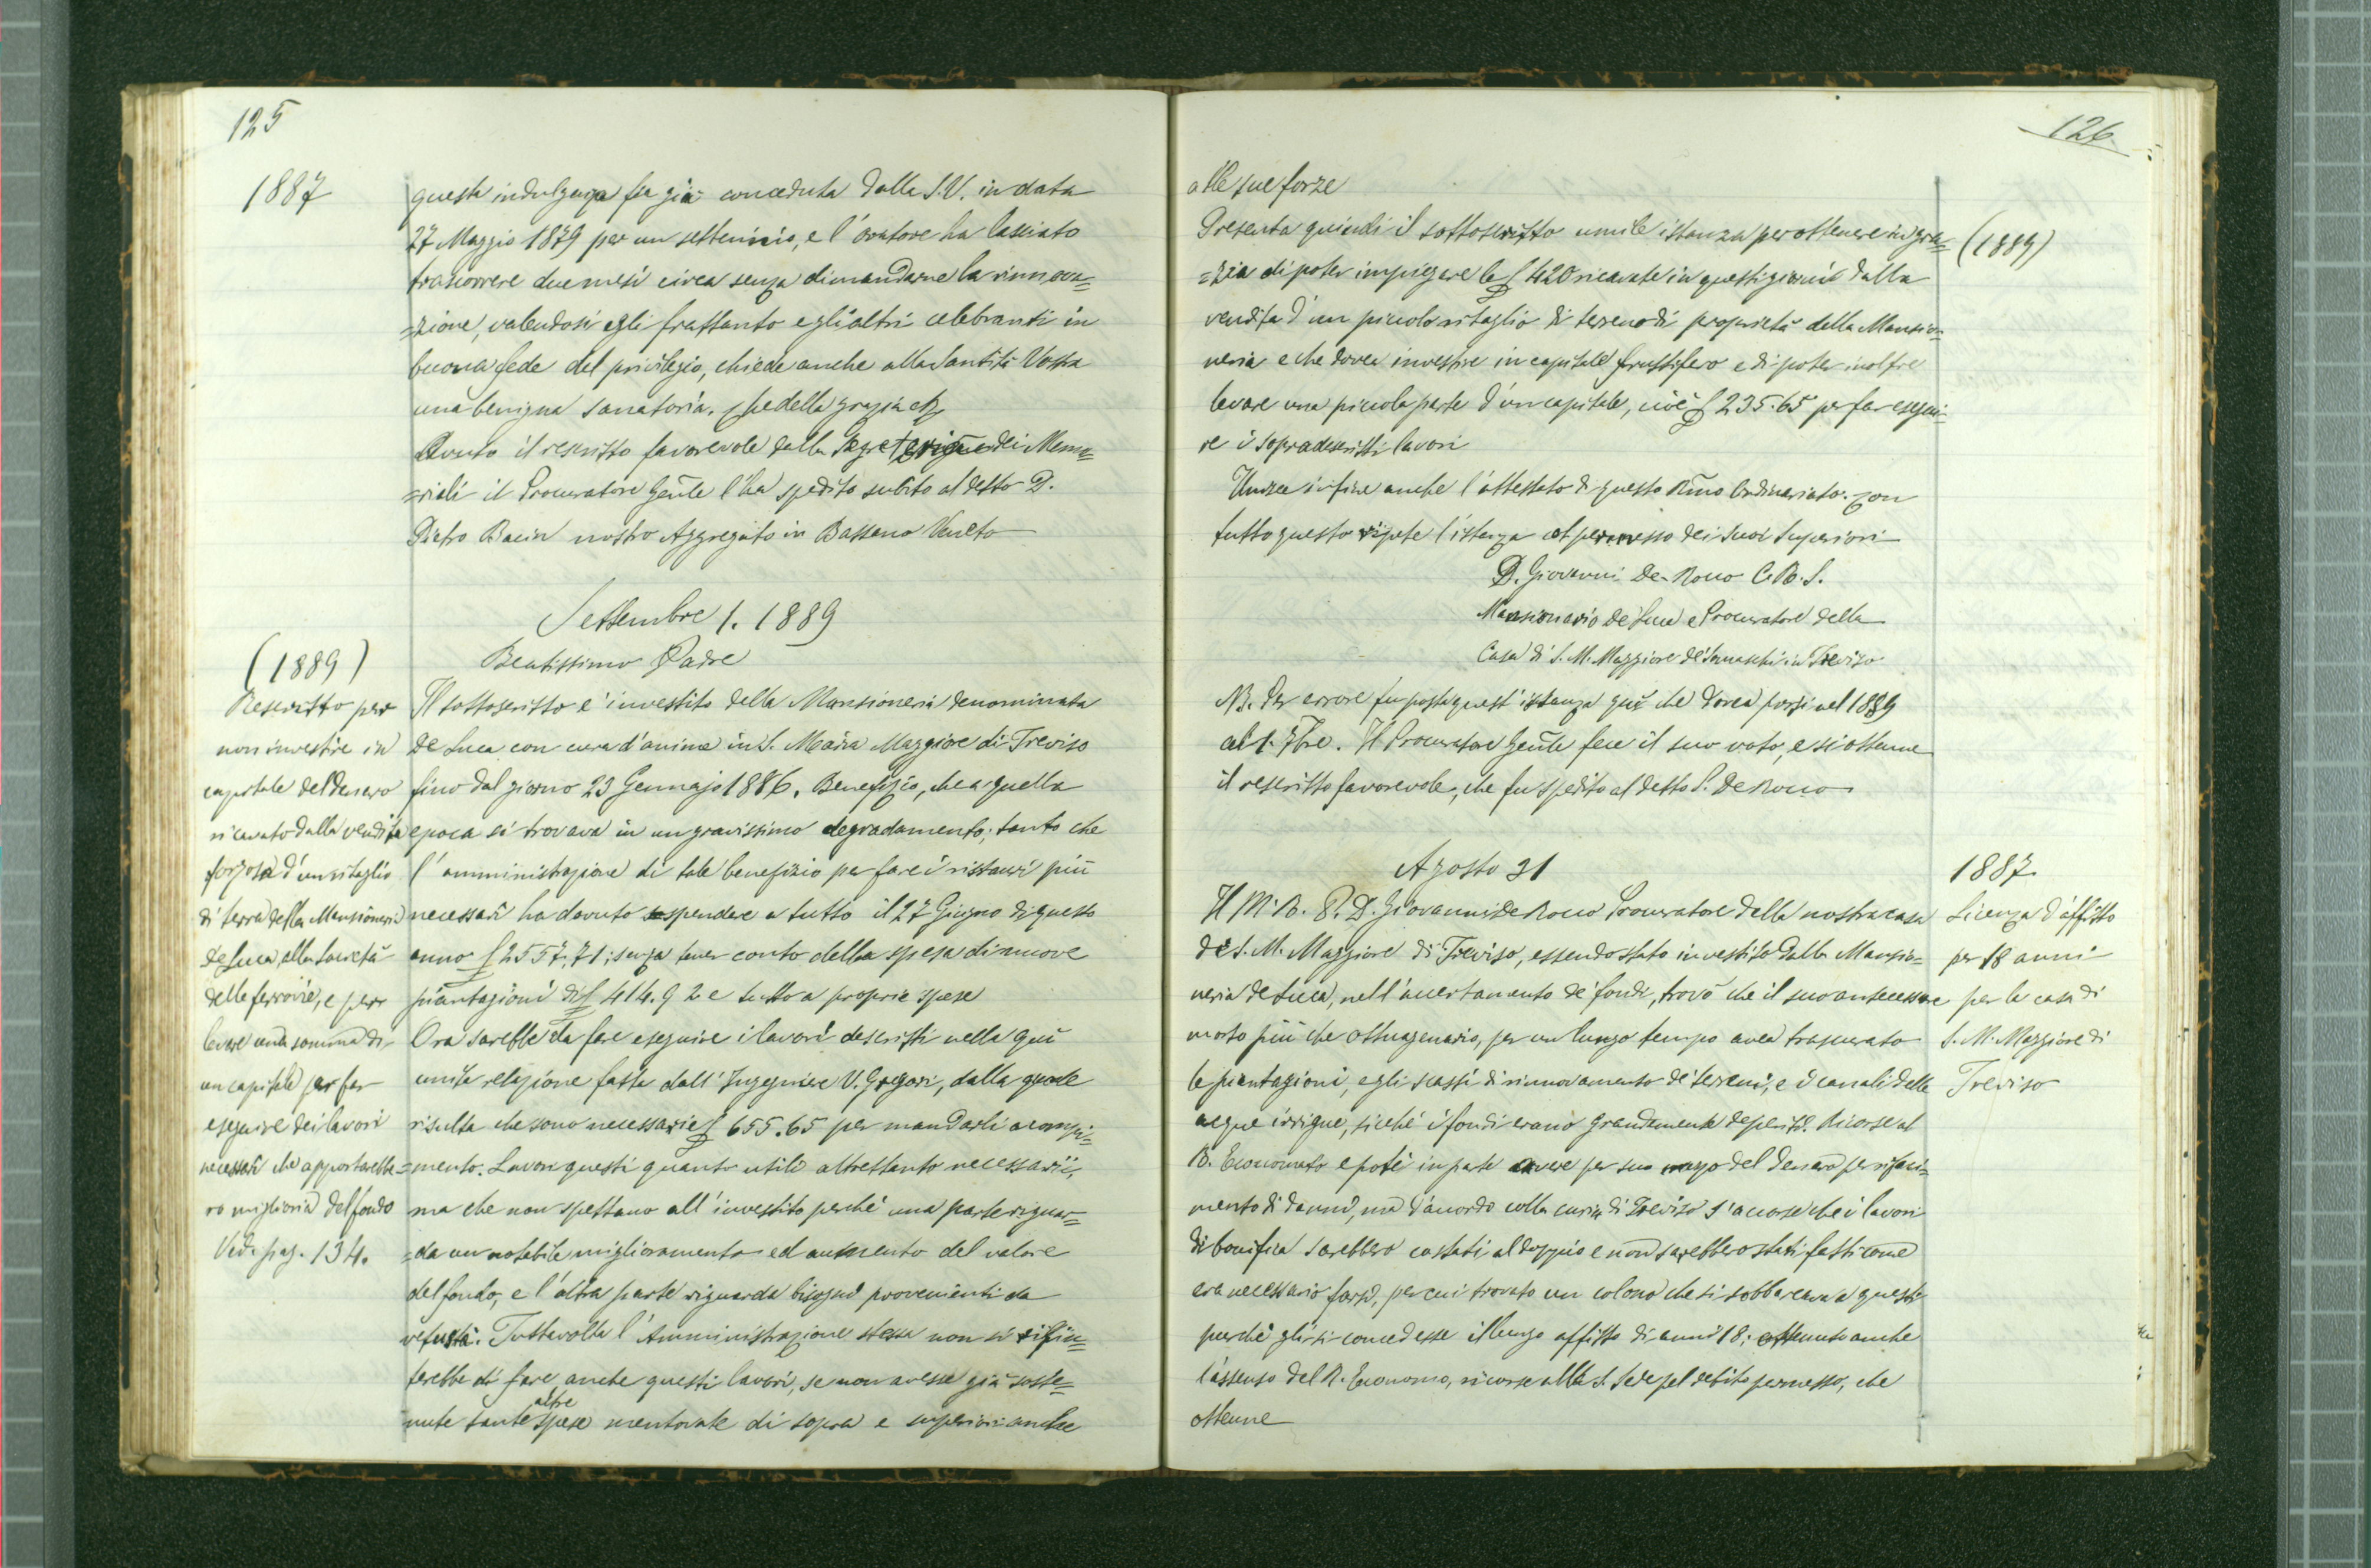 125
1887
questa indulgenza fu già conceduta dalla S.V. in data
27 Maggio 1879 per un settennio, e l'oratore ha lasciato
trascorrere due mesi circa senza dimandarne la rinnova=
=zione, valendosi egli frattanto e gli altri celebranti in
buona fede del privilegio, chiede anche alla Santità Vostra
una benigna sanatoria. Che della grazia
Avuto il rescritto favorevole dalla Segreteria dei Memo=
=riali il Procuratore Genle l'ha spedito subito al detto D.
Pietro Bacin nostro Aggregato in Bassano Veneto
Settembre 1. 1889
Beatissimo Padre
(1889)
Rescritto per
non investire in
capitale del denaro
ricavato dalla vendita
forzosa d'un ritaglio
di terra della Mansioneria
de Luca, alla Società
delle ferrovie, e per
levare una somma di
un capitale per far
eseguire dei lavori
necessari che apportarebbe=
ro miglioria del fondo
Vedi pag. 134.
Il sottoscritto è investito della Mansioneria denominata
De Luca con cura d'anime in S. Maria Maggiore di Treviso
fino dal giorno 23 Gennajo 1886. Benefizio, che a quella
epoca si trovava in un gravissimo degradamento; tanto che
l'amministrazione di tale benefizio per fare i ristauri più
necessari ha dovuto spendere a tutto il 27 Giugno di questo
anno £ 2557,71; senza tener conto della spesa di nuove
piantagioni di £ 414.92 e tutto a proprie spese
Ora sarebbe da fare eseguire i lavori descritti nella quì
unita relazione fatta dall'Ingegnere V. Gregori, dalla quale
risulta che sono necessarie £ 655.65 per mandarli a compi=
=mento. Lavori questi quanto utili altrettanto necessarii,
ma che non spettano all'investito perchè una parte riguar=
=da un notabile miglioramento ed aumento del valore
del fondo, e l'altra parte riguarda bisogni provenienti da
vetustà. Tuttavolta l'Amministrazione stessa non si rifiu=
terebbe di fare anche questi lavori, se non avesse già soste=
nute tante altre spese mentovate di sopra e superiori anche
126
alle sue forze
(1889)
Presenta quindi il sottoscritto umile istanza per ottenere in gra=
=zia di poter impiegare le £ 420 ricavate in questi giorni dalla
vendita d'un piccolo ritaglio di terreno di proprietà della Mansio=
neria e che dovea investire in capitale fruttifero e di poter inoltre
levare una piccola parte d'un capitale, cioè £ 235.65 per far esegui=
re i sopradescritti lavori
Unisce infine anche l'attestato di questo Rmo Ordinariato. Con
tutto questo ripete l'istanza col permesso dei suoi Superiori
D. Giovanni De-Rocco C.R.S.
Mansionario de Luca e Procuratore della
Casa di S. M. Maggiore de' Somaschi in Treviso
NB. Per errore fu posta quest'istanza quì che dovea porsi nel 1889
al 1. 7bre. Il Procuratore Genle fece il suo voto, e si ottenne
il rescritto favorevole, che fu spedito al detto P. De Rocco
Agosto 31
1887
Licenza d'affitto
per 18 anni
per la casa di
S. M. Maggiore di
Treviso
Il M. R. P. D. Giovanni De Rocco Procuratore della nostra casa
di S. M. Maggiore di Treviso, essendo stato investito della Mansio=
neria de Luca, nell'accertamento de' fondi, trovò che il suo antecessore
morto più che ottuagenario, per un lungo tempo avea trascurato
le piantagioni, e gli scassi di rinnovamento de' terreni, e i canali delle
acque irrigue, sicchè i fondi erano grandemente deperiti. Ricorse al
R. Economato e potè in parte avere per suo mezzo del denaro per risarci=
mento di danni, ma d'accordo colla curia di Treviso s'accorse che i lavori
di bonifica sarebbero costati al doppio e non sarebbero stati fatti come
era necessario farsi, per cui trovato un colono che si sobbarcava a questi
purchè gli si concedesse il lungo affitto di anni 18; ottenuto anche
l'assenso del R. Economo, ricorse alla S. Sede pel debito permesso, che
ottenne